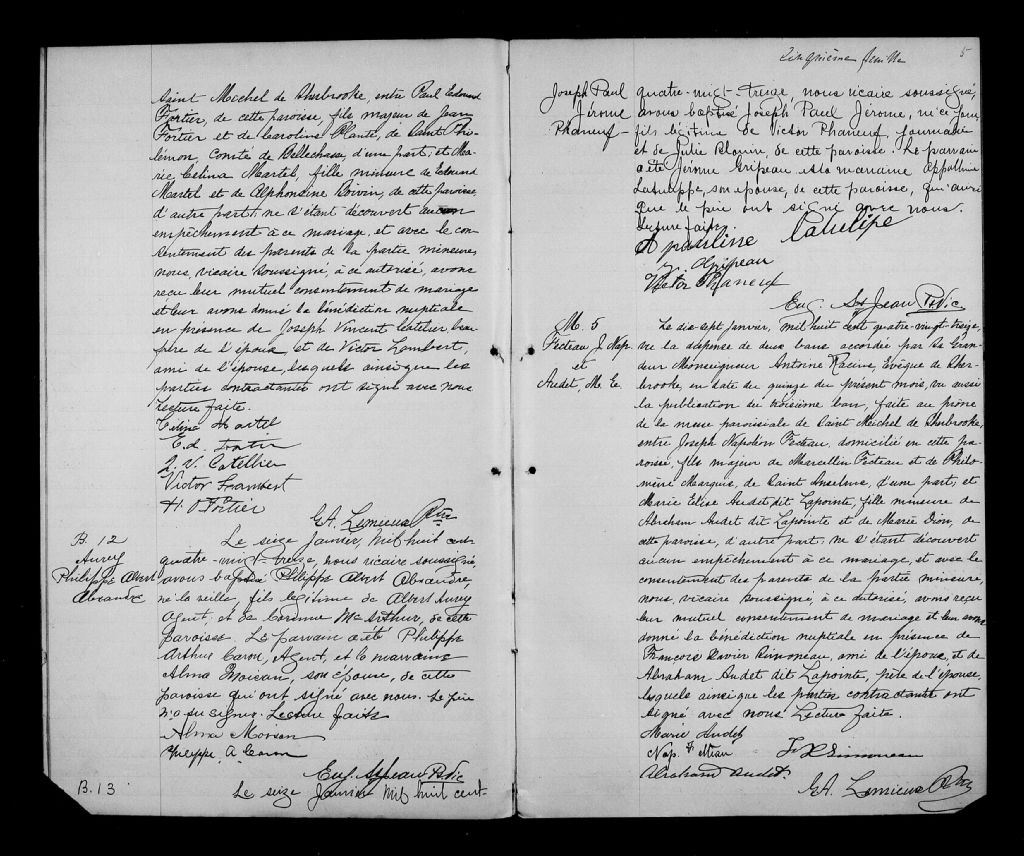 Saint Michel de Sherbrooke, entre Paul Edmond
Fortier, de cette paroisse, fils majeur de Jean
Fortier et de Caroline Plante, de Saint Phi-
lémon, Comté de Bellechasse, d'une part; et Ma-
rie Celina Martel, fille mineure de Edmond
Martel et de Alphonsine Boivin, de cette paroisse
d'autre part; ne s'étant découvert aucun
empêchement à ce mariage, et avec le con-
sentement des parents de la partie mineure,
nous, vicaire soussigné, à ce autorisé, avons
reçu leur mutuel consentement de mariage
et leur avons donné la bénédiction nuptiale
en présence de Joseph Vincent Catelier, beau
père de l'époux, et de Victor Lambert,
ami de l'épouse, lesquels ainsi que les
parties contractantes ont signé avec nous
Lecture faite.
Celina Martel
E.d. Fortier
J. V. Catellier
Victor Lambert
H. O Fortier
G.A. Lemieux Ptre
B. 12
Aurey
Philippe Albert
Alexandre
Le seize Janvier, Mil huit cent
quatre-vingt-treize, nous vicaire soussigné,
avons baptisé Philippe Albert Alexandre,
né la veille, fils légitime de Albert Aurey
Agent, et de Cordina McArthur, de cette
paroisse. Le parrain a été Philippe
Arthur Caron, Agent, et la marraine
Alma Moisan, son épouse, de cette
paroisse qui ont signé avec nous. Le père
n'a su signer. Lecture faite
Alma Moisan
Philippe A. Caron
Eug. St Jean Ptre Vic
B. 13
Le seize Janvier Mil huit cent
Cinquième feuille
5
Joseph Paul
Jérome
Phaneuf
quatre-vingt-treize, nous vicaire soussigné,
avons baptisé Joseph Paul Jérome, né ce jour,
fils légitime de Victor Phaneuf, journalier
et de Julie Blouin, de cette paroisse. Le parrain
a été Jérome Gripeau et la marraine Appolline
Latulippe, son épouse, de cette paroisse, qui ainsi
que le père ont signé avec nous.
Lecture faite.
Apauline Latulipe
J. Gripeau
Victor Phaneuf
Eug. St Jean Ptre Vic
M. 5
Fecteau J. Nap.
et
Audet, M. E.
Le dix-sept janvier, mil huit cent quatre-vingt-treize,
vu la dispense de deux bans accordée par Sa Gran-
deur Monseigneur Antoine Racine, Evêque de Sher-
brooke, en date du quinze du présent mois, vu aussi
la publication du troisième ban, faite au prône
de la messe paroissiale de Saint Michel de Sherbrooke,
entre Joseph Napoléon Fecteau, domicilié en cette pa-
roisse, fils majeur de Marcellin Fecteau et de Philo-
mène Marquis, de Saint Anselme, d'une part; et
Marie Elise Audet dit Lapointe, fille mineure de
Abraham Audet dit Lapointe et de Marie Dion, de
cette paroisse, d'autre part; ne s'étant découvert
aucun empêchement à ce mariage, et avec le
consentement des parents de la partie mineure,
nous, vicaire soussigné, à ce autorisé, avons reçu
leur mutuel consentement de mariage et leur avons
donné la bénédiction nuptiale en présence de
François Xavier Simoneau, ami de l'époux, et de
Abraham Audet dit Lapointe, père de l'épouse,
lesquels ainsi que les parties contractantes ont
signé avec nous Lecture faite.
Marie Audet
Nap. Fecteau
F X Simoneau
Abraham Audet
G.A. Lemieux Ptre